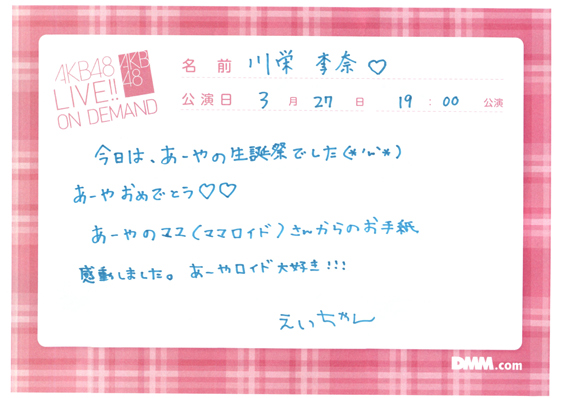 AKB48
LIVE!!
ON DEMAND
AKB
48
名 前 川栄 李奈♡
公演日 3 月 27 日 19 : 00 公演
今日は、あーやの生誕祭でした(*'ω'*)
あーやおめでとう♡♡
あーやのママ(ママロイド)さんからのお手紙
感動しました。あーやロイド大好き!!!
えいちゃん
DMM.com